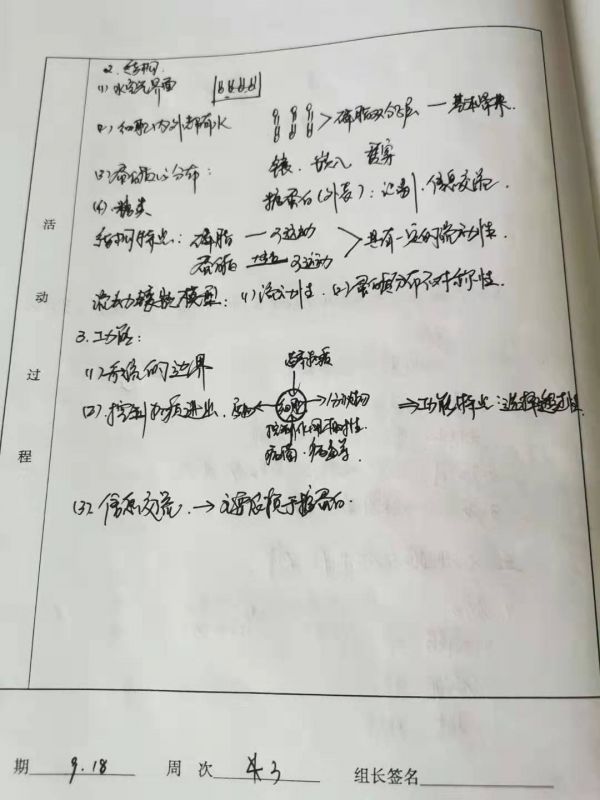 2. 结构
(1) 水空气界面
(2) 细胞内外都有水 > 磷脂双分子层 — 基本骨架.
(3) 蛋白质的分布: 镶、嵌入 贯穿
(4) 糖类 糖蛋白(外表): 识别、信息交流.
结构特点: 磷脂 — 可运动
蛋白质 大多数 可运动 > 具有一定的流动性.
流动镶嵌模型: (1) 流动性. (2) 蛋白质分布不对称性.
3. 功能:
(1) 系统的边界
营养物质
(2) 控制物质进出. 废物 ← 细胞 → 分泌物 ⇒ 功能特点: 选择透过性
控制作用相对性.
病菌、病毒等
(3) 信息交流. → 主要依赖于糖蛋白.
活动过程
期 9.18 周 次 组长签名